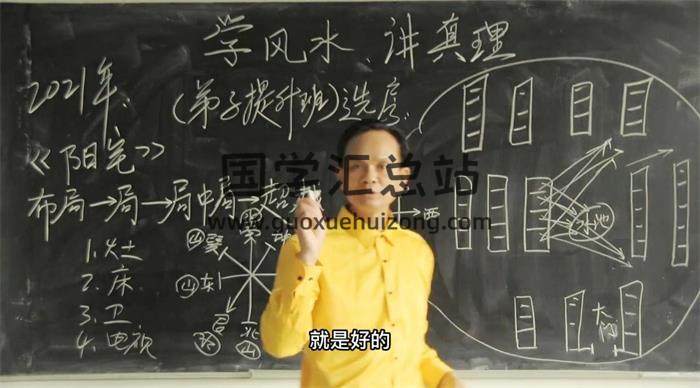 学风水、讲真理
2021年、
(弟子提升班)选房、
《阳宅》
国学汇总站
www.guoxuehuizong.com
布局→局→局中局→
西
水池
1.灶
2.床
3.卫
4.电视
东
北
大门
就是好的